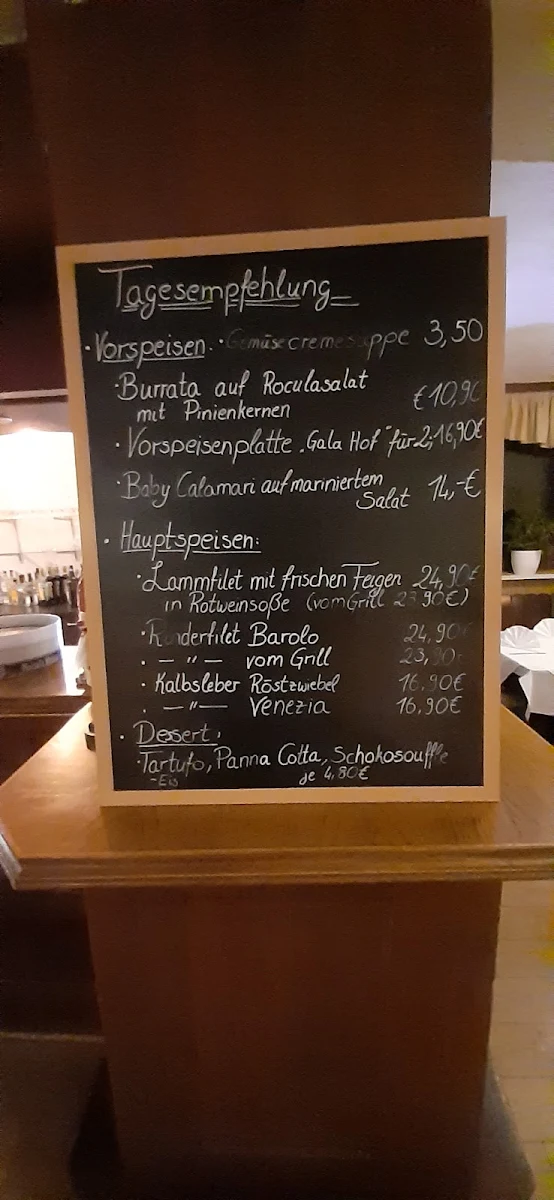 Tagesempfehlung
· Vorspeisen: · Gemüsecremesuppe 3,50
· Burrata auf Roculasalat €10,90
mit Pinienkernen
· Vorspeisenplatte „Gala Hof" für 2; 16,90€
· Baby Calamari auf mariniertem
Salat 14,-€
· Hauptspeisen:
· Lammfilet mit frischen Feigen 24,90€
in Rotweinsoße (vom Grill 23,90€)
· Rinderfilet Barolo 24,90
· — " — vom Grill 23,90
· Kalbsleber Röstzwiebel 16,90€
· — " — Venezia 16,90€
· Dessert,
· Tartufo, Panna Cotta, Schokosouffle
-Eis je 4,80€